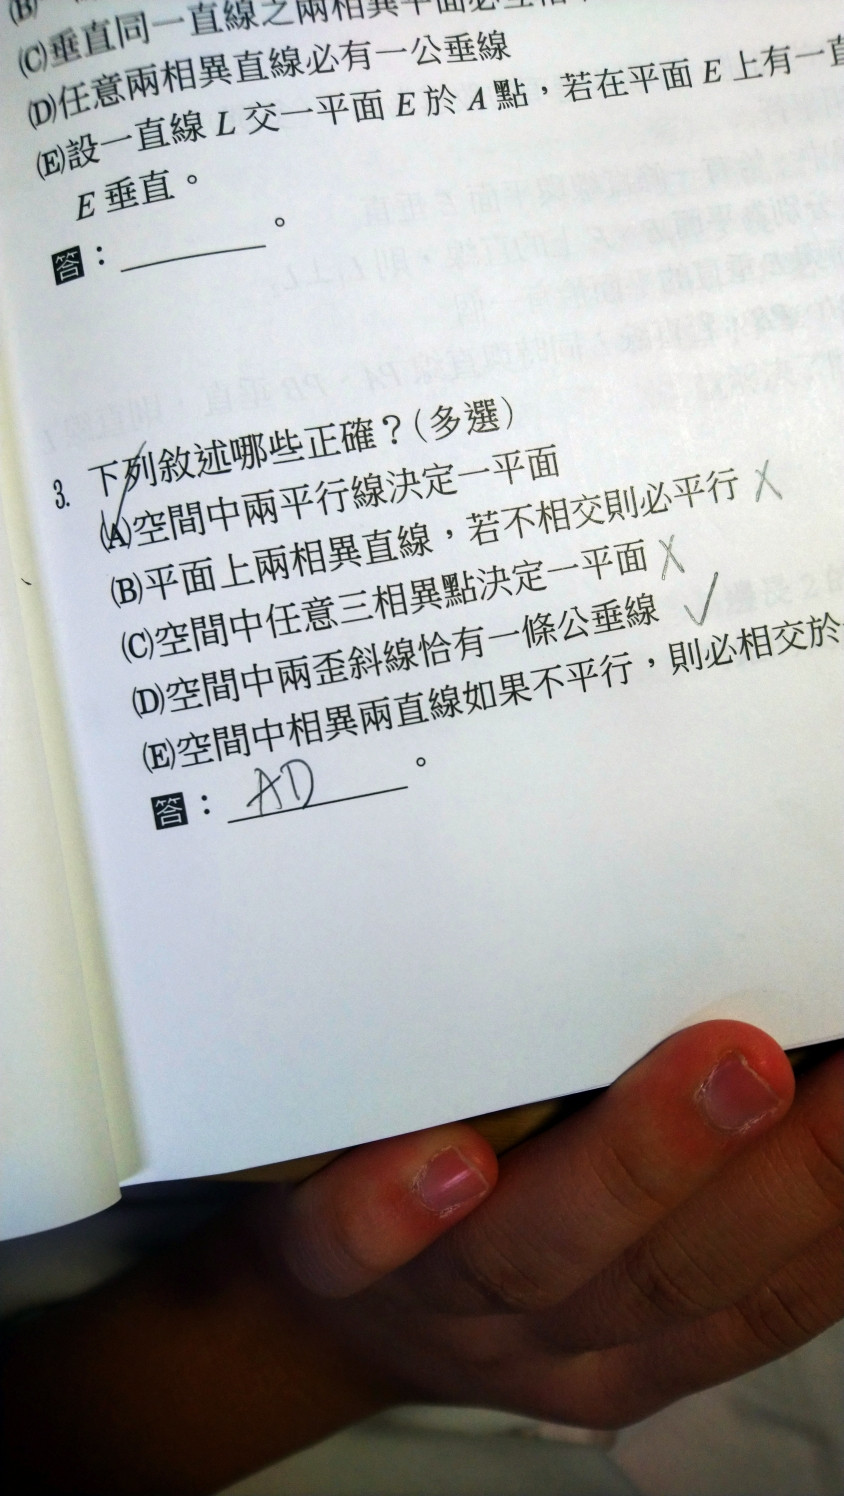 (B)
(C)垂直同一直線之兩相異平面必
(D)任意兩相異直線必有一公垂線
(E)設一直線 L 交一平面 E 於 A 點，若在平面 E 上有一直
E 垂直。
答：________。
3. 下列敘述哪些正確？(多選)
(A)空間中兩平行線決定一平面
(B)平面上兩相異直線，若不相交則必平行 X
(C)空間中任意三相異點決定一平面 X
(D)空間中兩歪斜線恰有一條公垂線 ✓
(E)空間中相異兩直線如果不平行，則必相交於
答：AD。